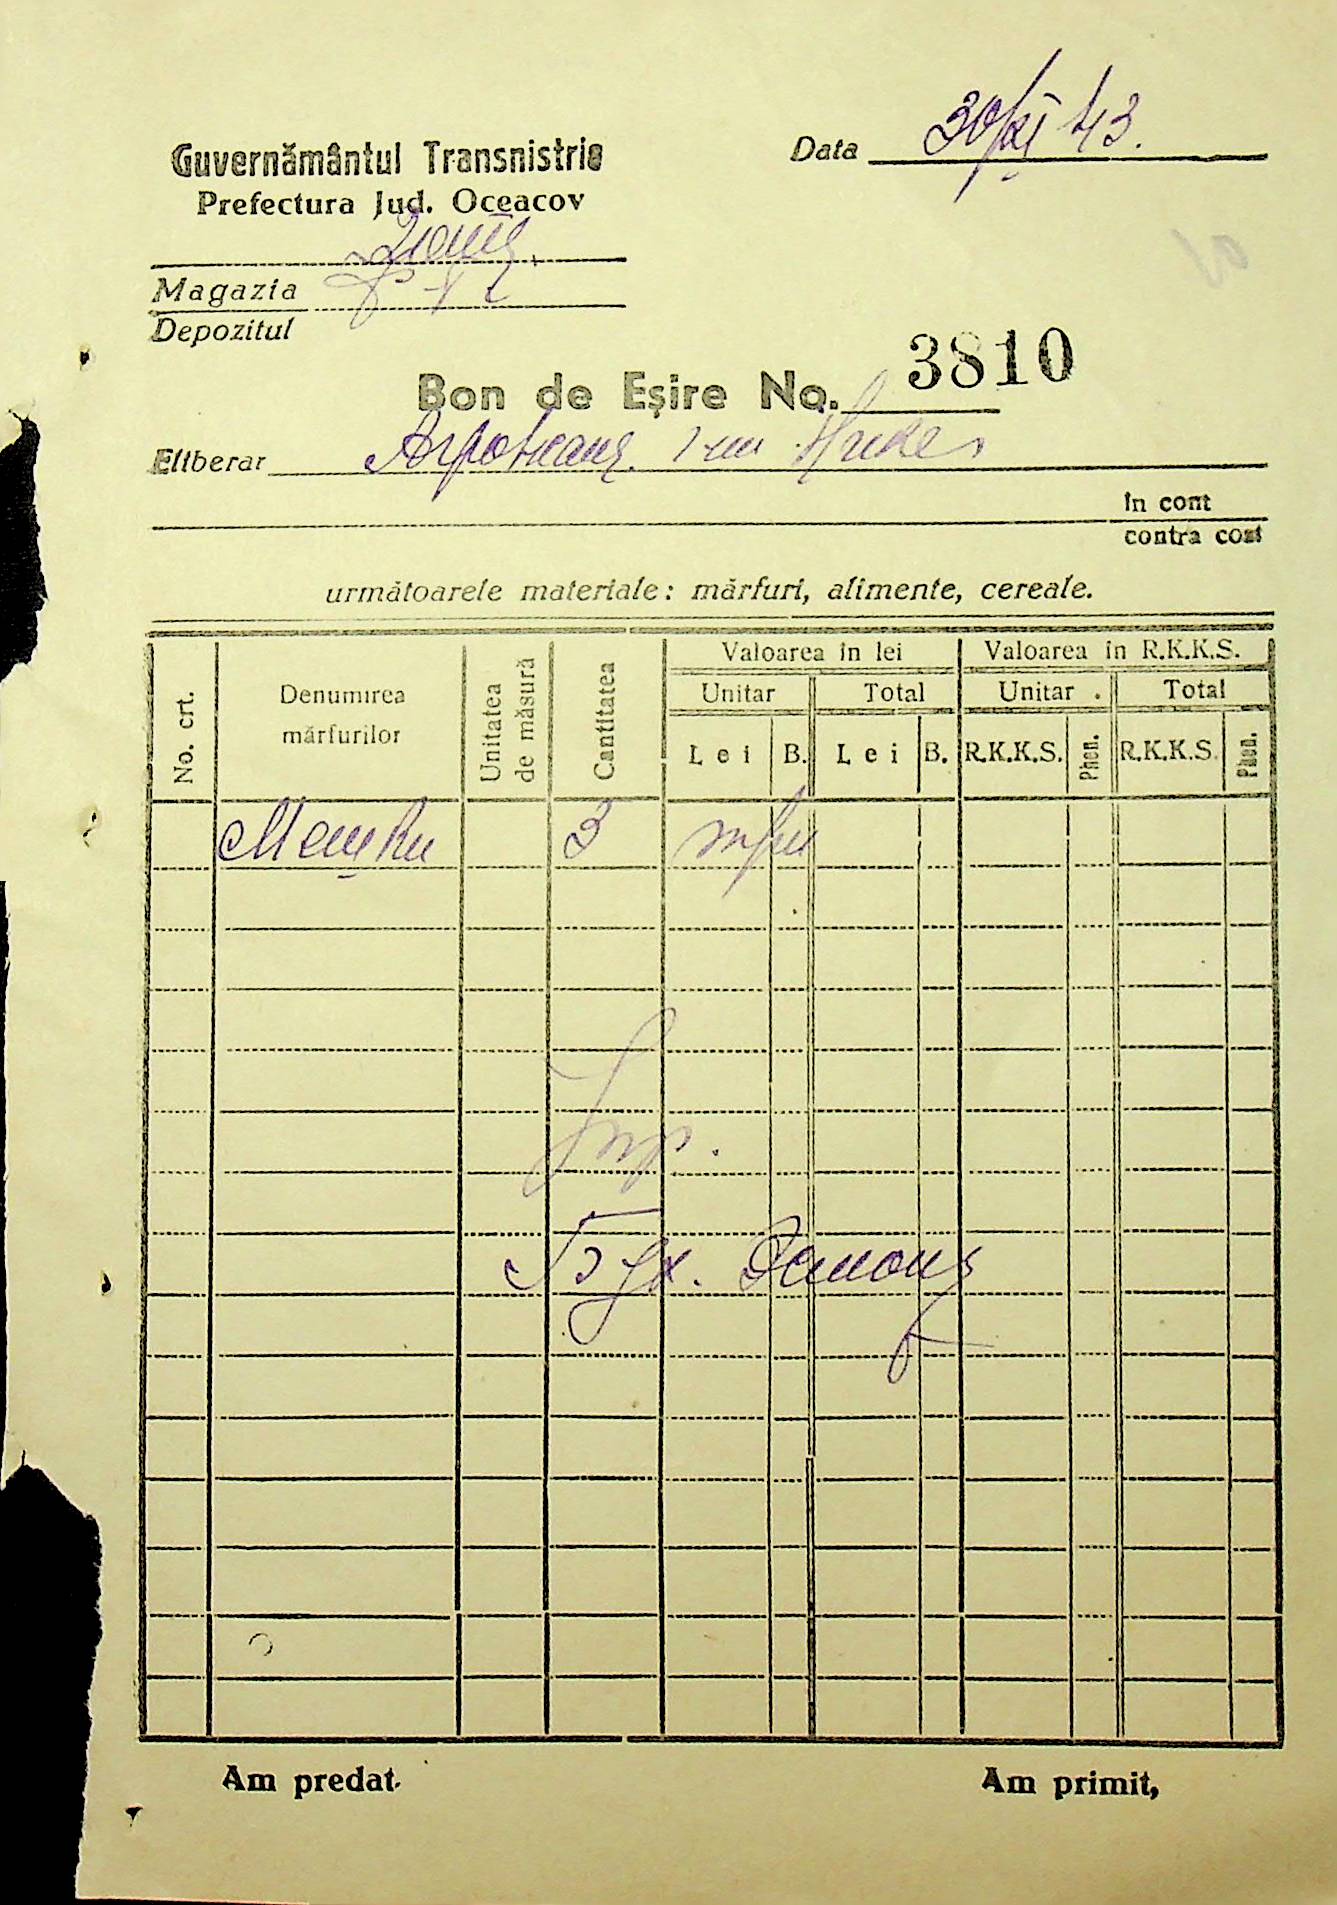 Guvernământul Transnistrie
Prefectura Jud. Oceacov
Data 30/XI 43.
Magazia
Depozitul
Bon de Eşire No. 3810
Eliberar
în cont
contra cost
următoarele materiale: mărfuri, alimente, cereale.
No. crt.
Denumirea mărfurilor
Unitatea de măsură
Cantitatea
Valoarea în lei
Valoarea în R.K.K.S.
Unitar
Total
Unitar
Total
Lei
B.
Lei
B.
R.K.K.S.
Phen.
R.K.K.S.
Phen.
Мешки 3 три
Бух.
Am predat
Am primit,